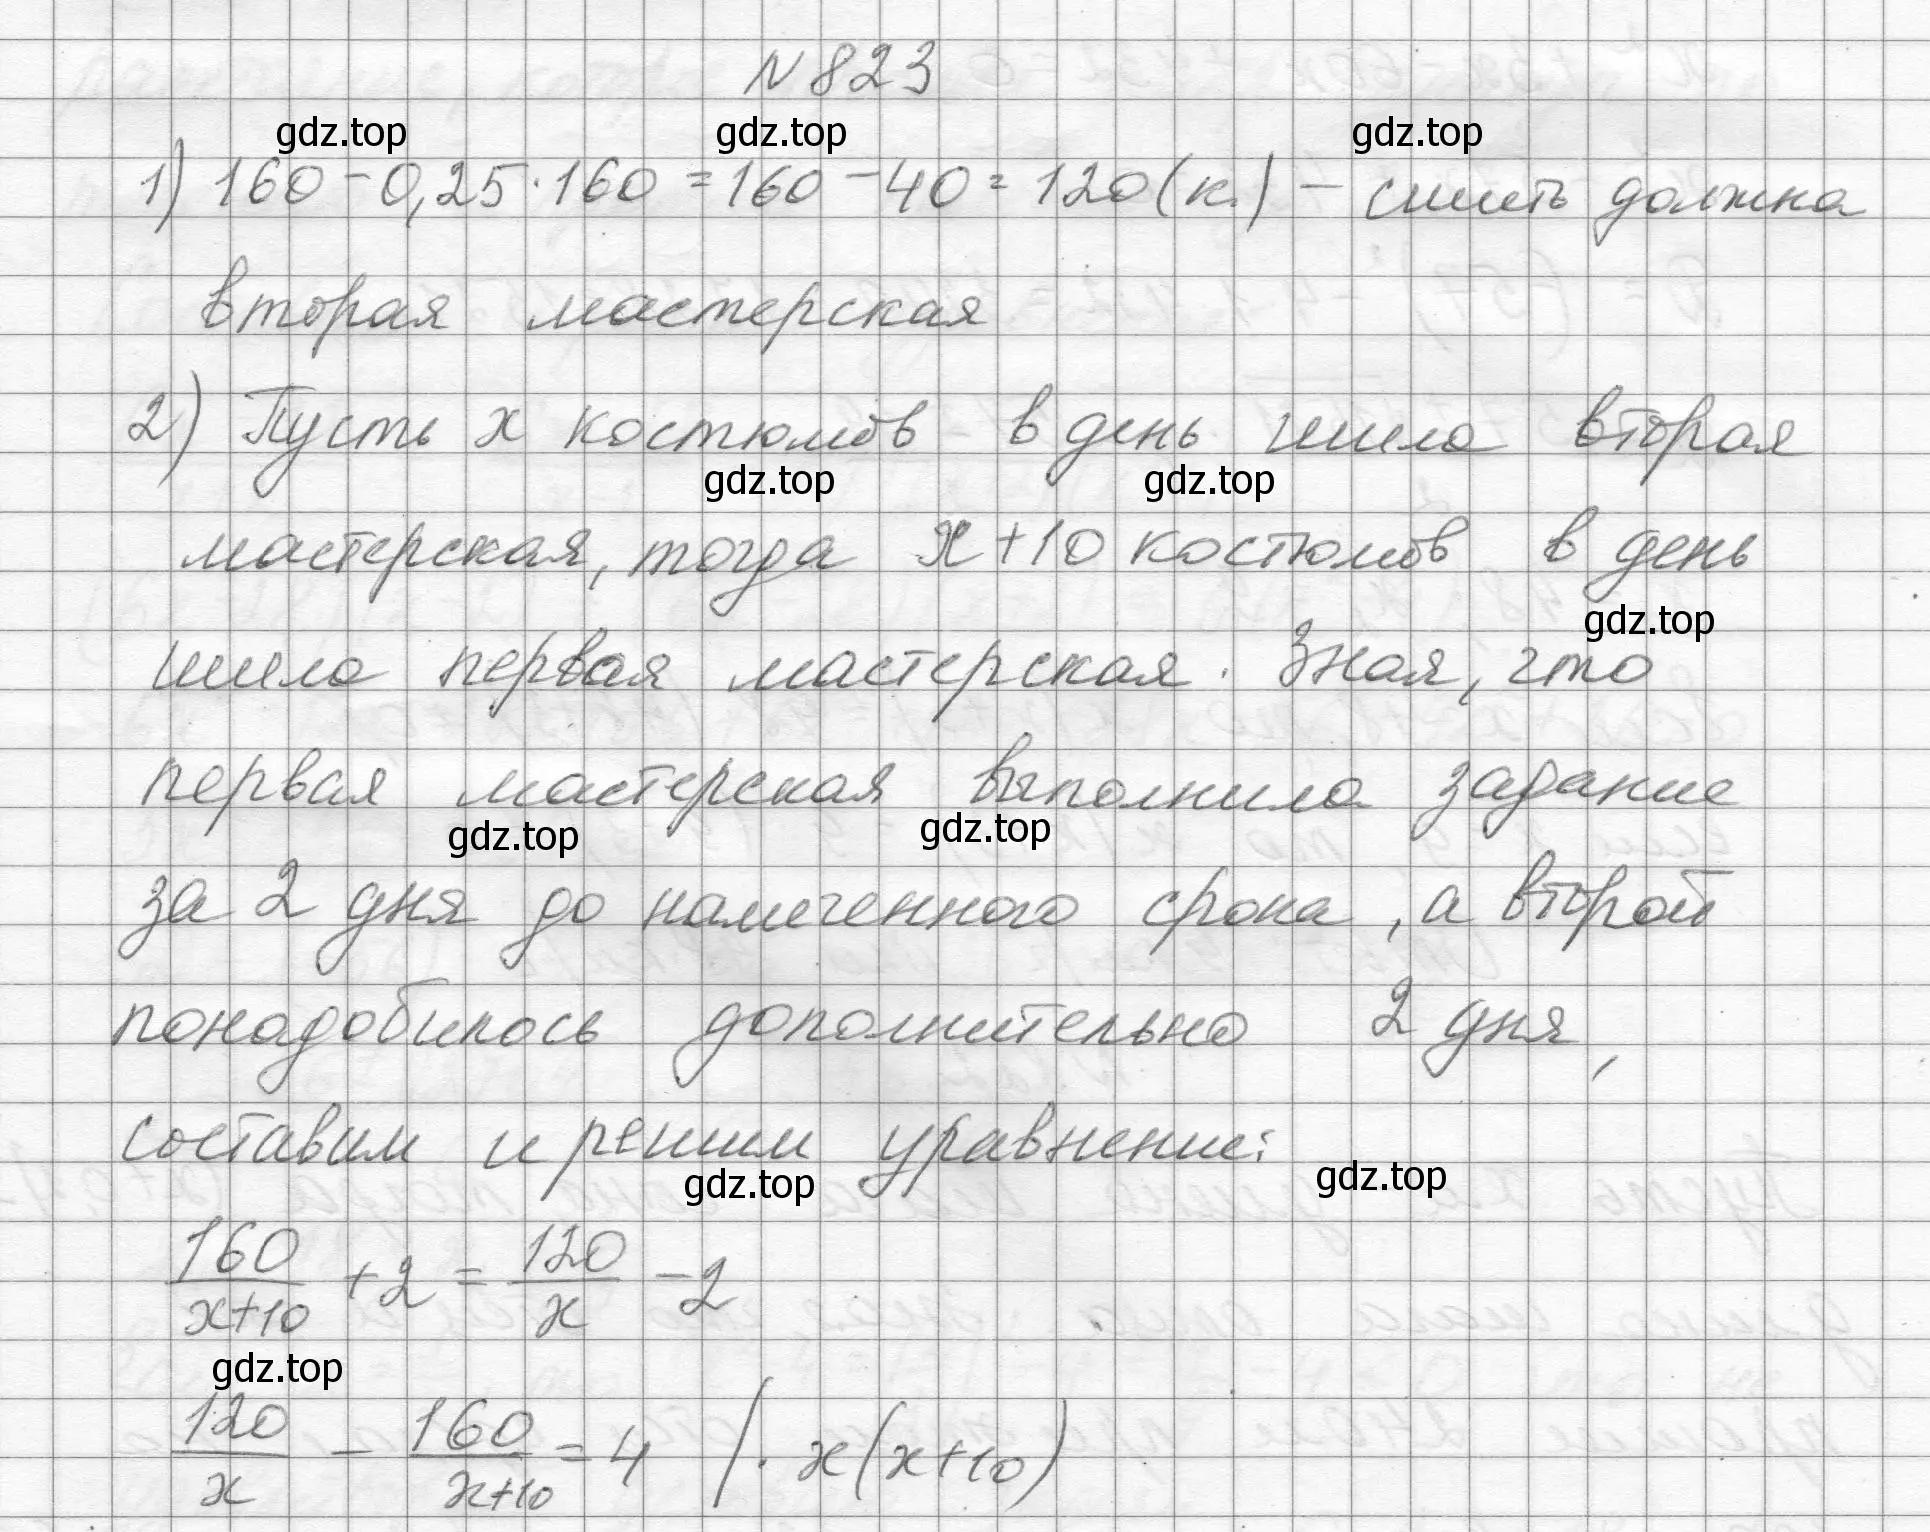 № 823
gdz.top gdz.top gdz.top
1) 160 - 0,25 · 160 = 160 - 40 = 120 (к.) - сшить должна
вторая мастерская
2) Пусть x костюмов в день шила вторая
gdz.top gdz.top
мастерская, тогда x+10 костюмов в день
gdz.top
шила первая мастерская. Зная, что
первая мастерская выполнила задание
gdz.top gdz.top
за 2 дня до намеченного срока, а второй
понадобилось дополнительно 2 дня,
составим и решим уравнение:
gdz.top gdz.top
160/(x+10) + 2 = 120/x - 2
gdz.top
120/x - 160/(x+10) = 4 | · x(x+10)